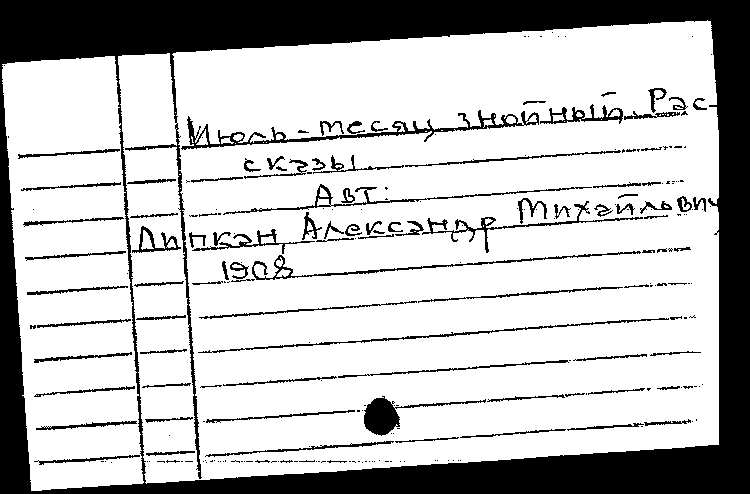 Июль-месяц знойный. Рас-
сказы.
Авт:
Липкан, Александр Михайлович,
1908